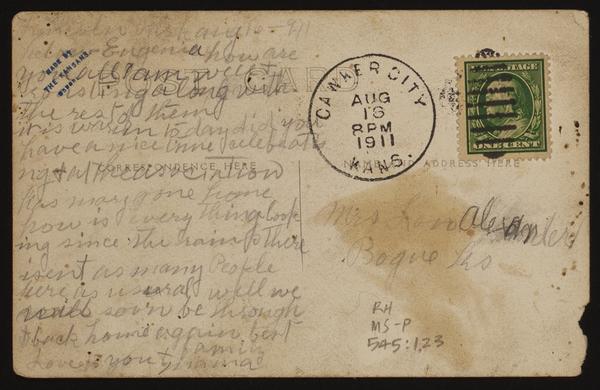 Eugenia how are
MADE BY
THE KANSANS
you all I am well &
resting along with
the rest of them
it is warm today did you
have a nice time celebrat
ing at the association
has may gone home
how is everything look
ing since the rains there
isent as many People
here as usural well we
will soon be through
& back home again best
Love to you & family
Mama
CARD
CORRESPONDENCE HERE
NAME AND ADDRESS HERE
CAWKER CITY
AUG
8 PM
1911
KANS.
POSTAGE
ONE CENT
Mrs Alexander
Bogue Ks
RH
MS-P
545:1.23